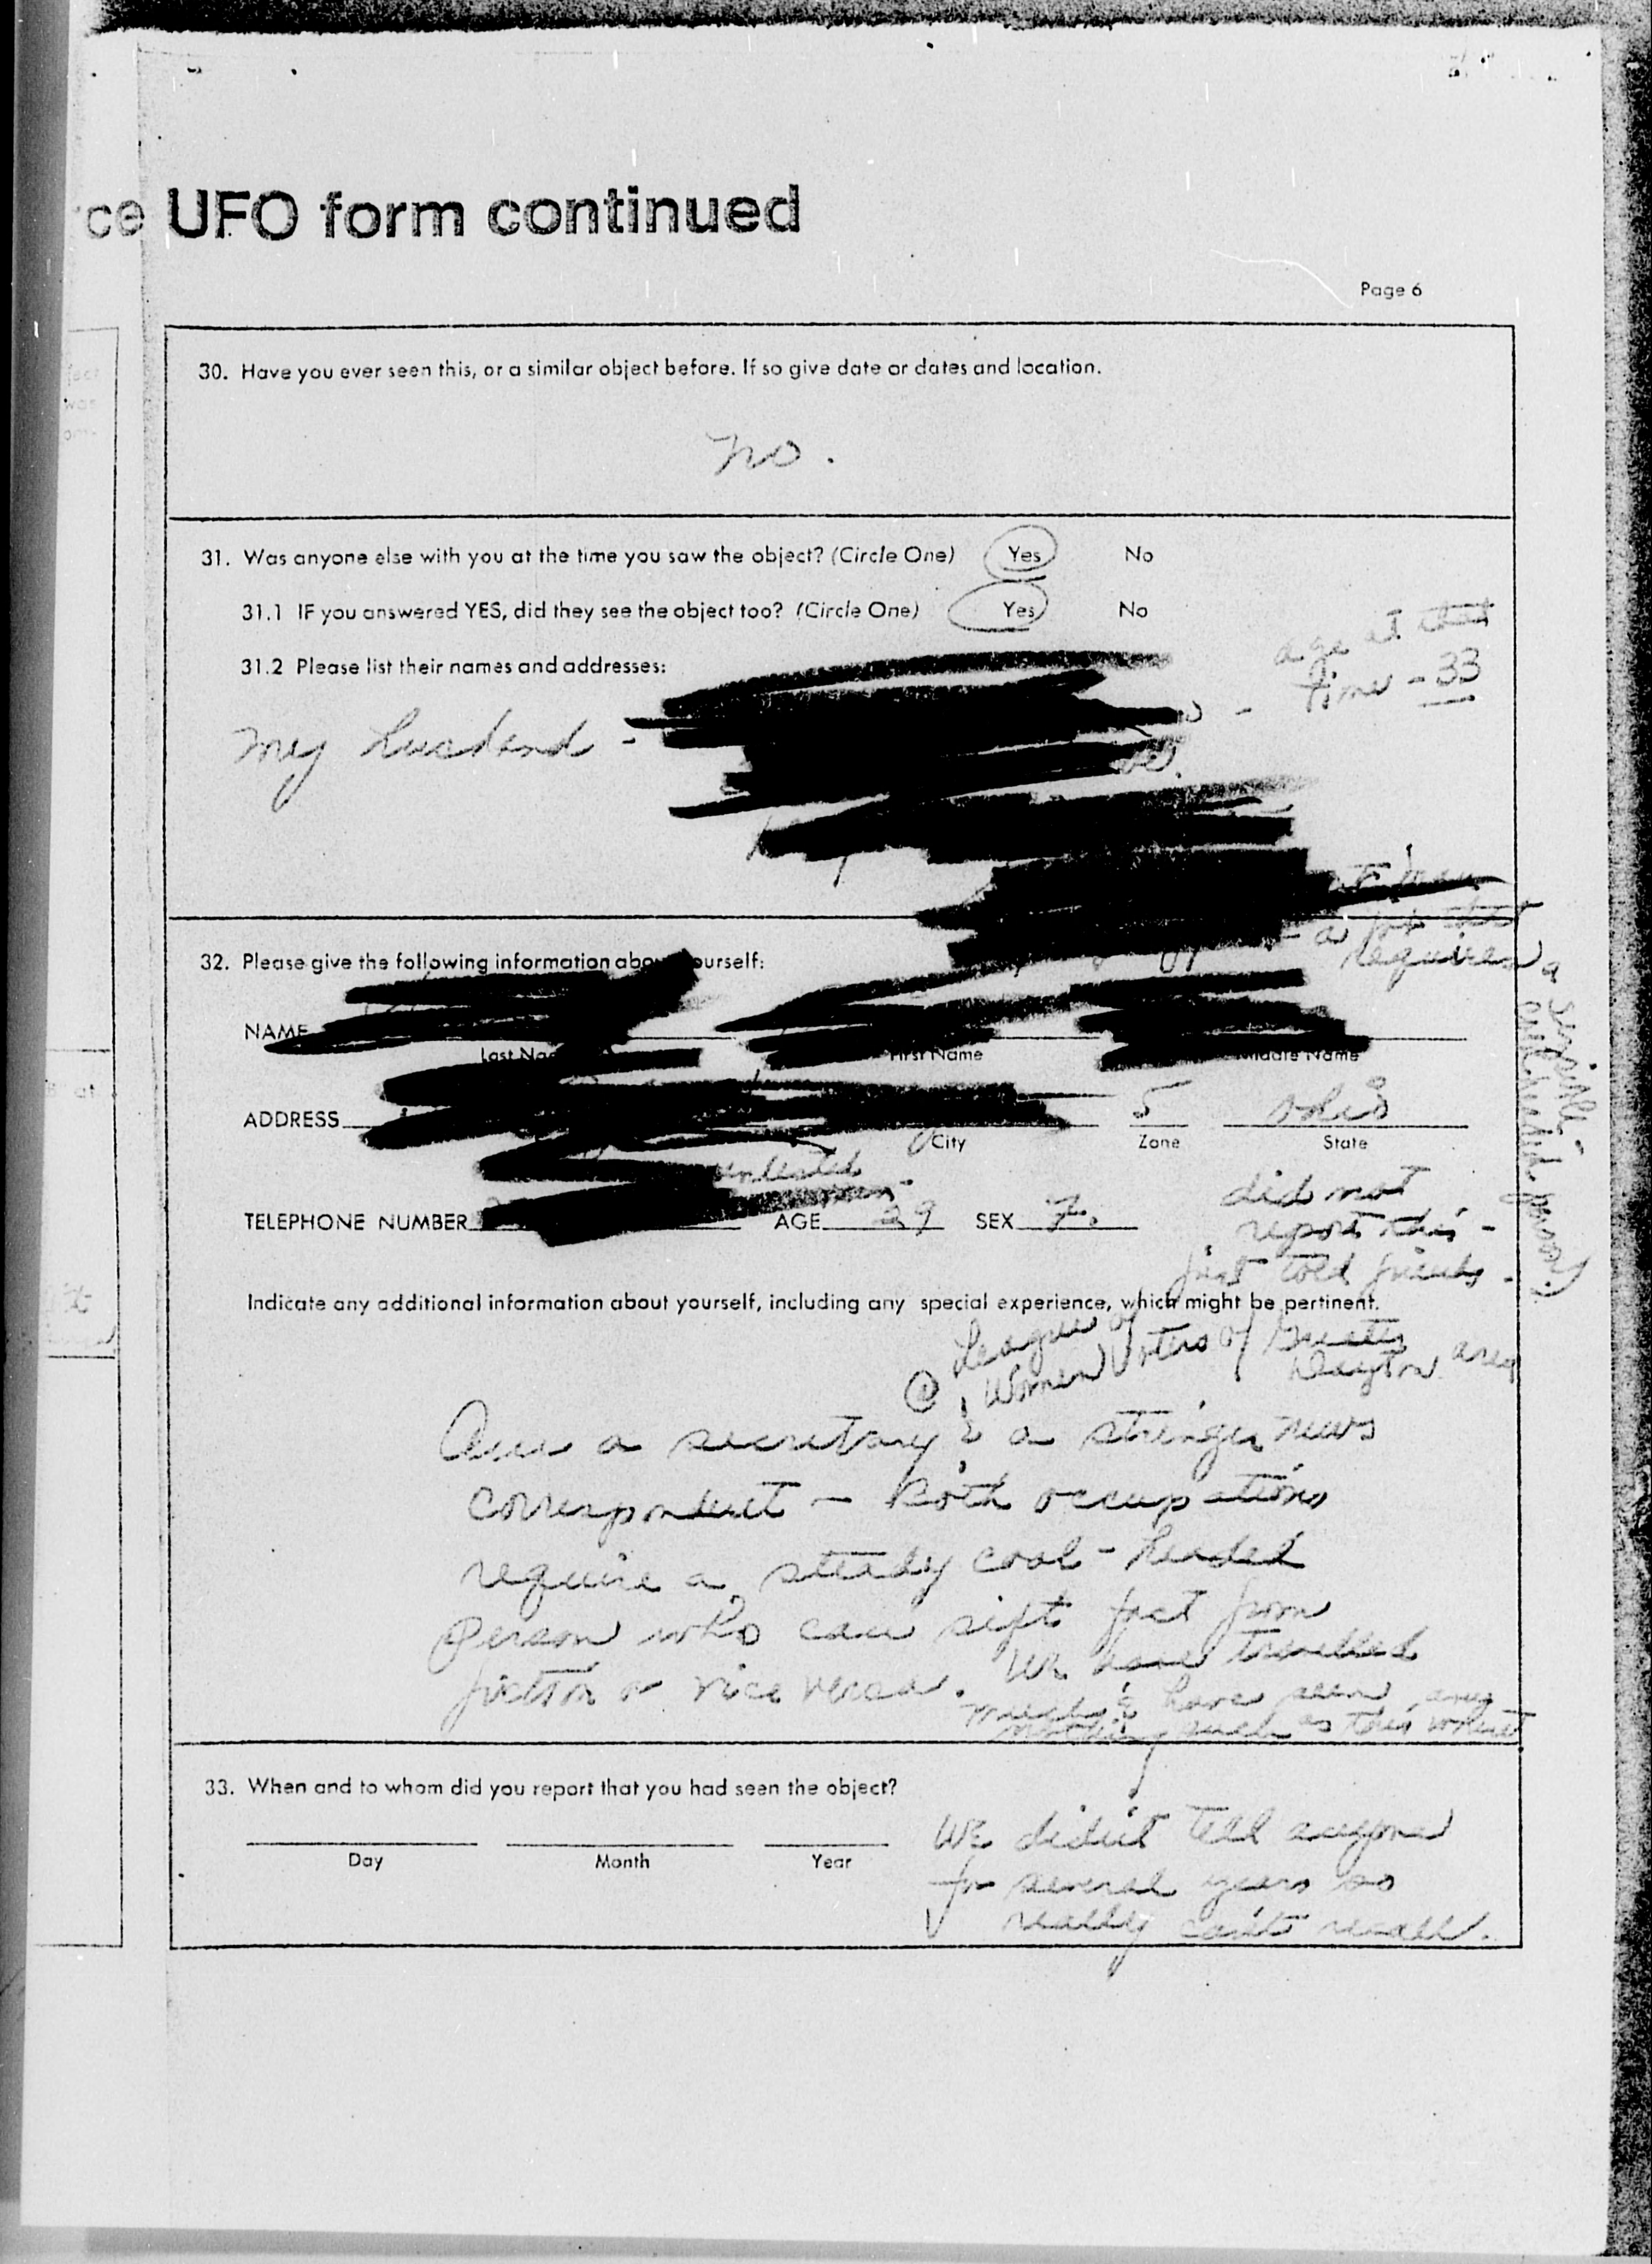 ce UFO form continued
Page 6
30. Have you ever seen this, or a similar object before. If so give date or dates and location.
No.
31. Was anyone else with you at the time you saw the object? (Circle One) Yes No
31.1 IF you answered YES, did they see the object too? (Circle One) Yes No
31.2 Please list their names and addresses:
age at that
time - 33
My husband -
a job that
requires a
sensible,
cool-headed person.)
32. Please give the following information about yourself:
NAME
Last Name First Name Middle Name
ADDRESS 5 Ohio
City Zone State
unlisted
TELEPHONE NUMBER AGE 29 SEX F.
did not
report this -
just told friends.
Indicate any additional information about yourself, including any special experience, which might be pertinent.
@ League of
Women Voters of Greater
Dayton area
Am a secretary & a stringer news
correspondent - Both occupations
require a steady cool-headed
person who can sift fact from
fiction or vice versa. We have travelled
much & have seen
nothing such as this
33. When and to whom did you report that you had seen the object?
Day Month Year
We didn't tell anyone
for several years so
really can't recall.